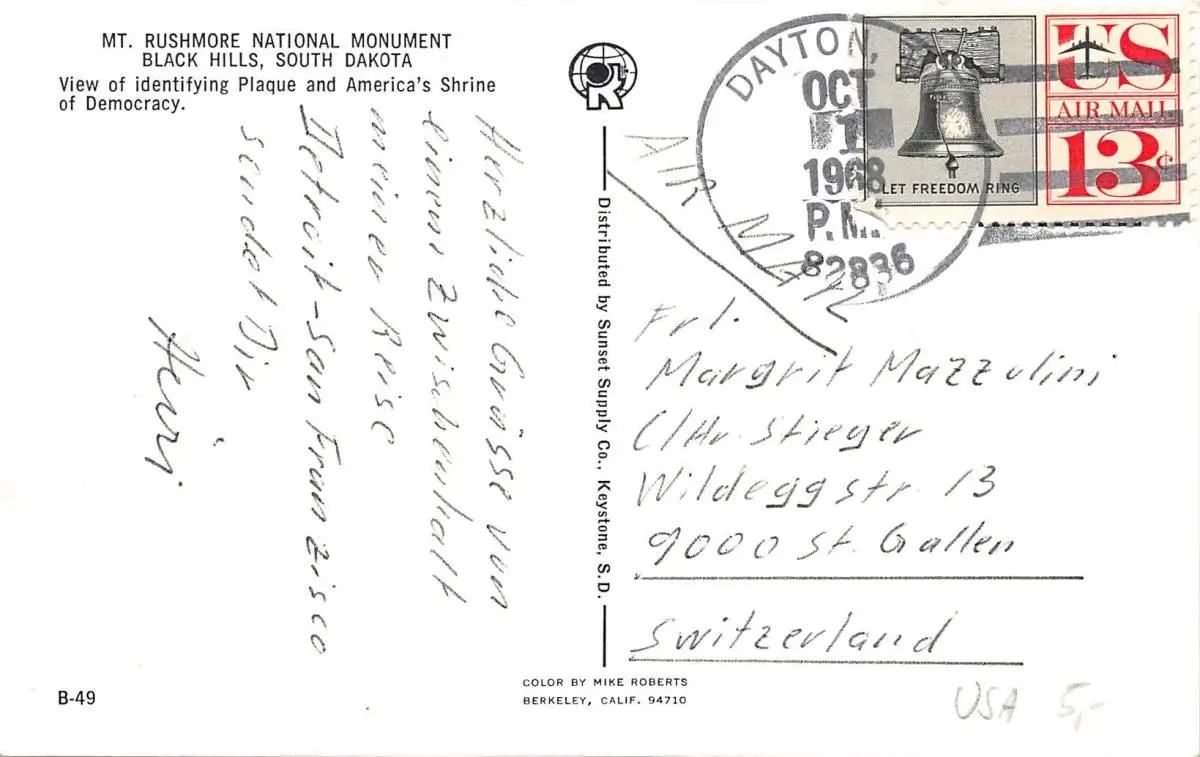 MT. RUSHMORE NATIONAL MONUMENT
BLACK HILLS, SOUTH DAKOTA
View of identifying Plaque and America's Shrine
of Democracy.
Herzliche Grüsse vom
einem Zwischenhalt
meiner Reise
Detroit-San Franzisco
sendet Dir
Heiri
B-49
Distributed by Sunset Supply Co., Keystone, S.D.
COLOR BY MIKE ROBERTS
BERKELEY, CALIF. 94710
DAYTON,
OCT
1
1968
P.M.
82836
LET FREEDOM RING
US
AIR MAIL
13¢
AIR MAIL
Frl.
Margrit Mazzolini
C/Hr. Stieger
Wildeggstr. 13
9000 St. Gallen
Switzerland
USA 5,-